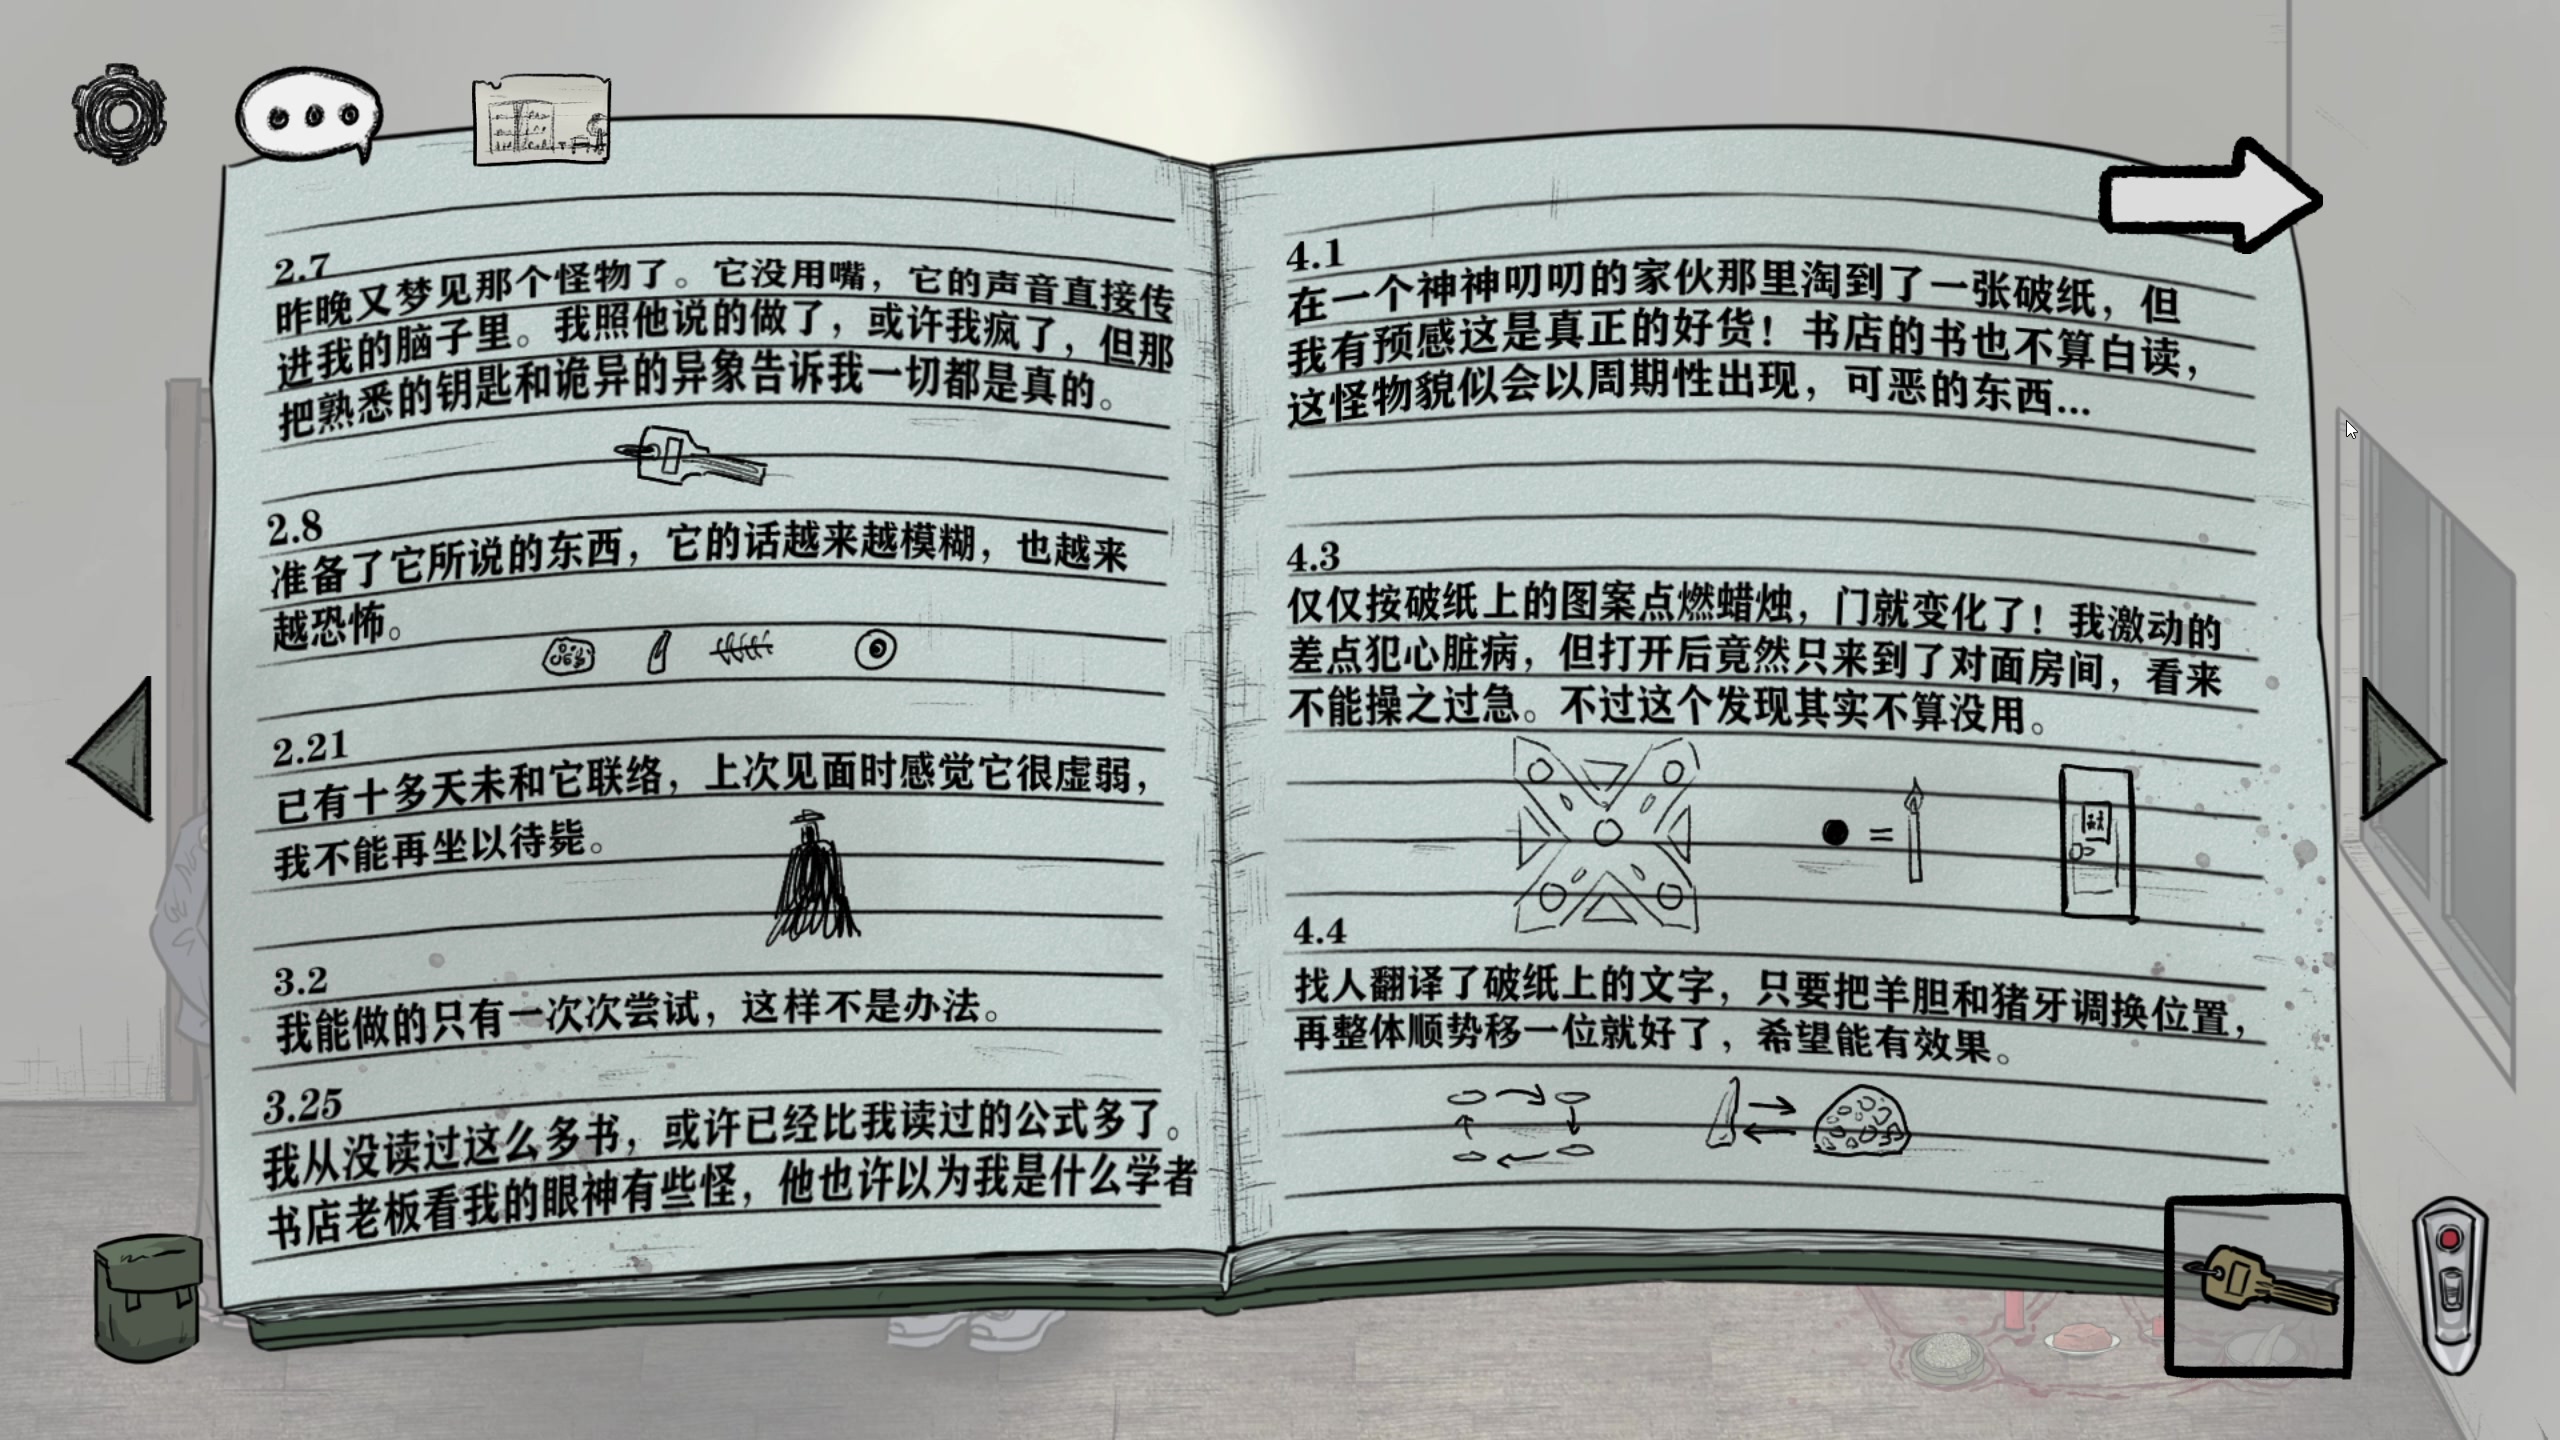 2.7
昨晚又梦见那个怪物了。它没用嘴，它的声音直接传
进我的脑子里。我照他说的做了，或许我疯了，但那
把熟悉的钥匙和诡异的异象告诉我一切都是真的。
2.8
准备了它所说的东西，它的话越来越模糊，也越来
越恐怖。
2.21
已有十多天未和它联络，上次见面时感觉它很虚弱，
我不能再坐以待毙。
3.2
我能做的只有一次次尝试，这样不是办法。
3.25
我从没读过这么多书，或许已经比我读过的公式多了。
书店老板看我的眼神有些怪，他也许以为我是什么学者
4.1
在一个神神叨叨的家伙那里淘到了一张破纸，但
我有预感这是真正的好货！书店的书也不算白读，
这怪物貌似会以周期性出现，可恶的东西...
4.3
仅仅按破纸上的图案点燃蜡烛，门就变化了！我激动的
差点犯心脏病，但打开后竟然只来到了对面房间，看来
不能操之过急。不过这个发现其实不算没用。
=
4.4
找人翻译了破纸上的文字，只要把羊胆和猪牙调换位置，
再整体顺势移一位就好了，希望能有效果。